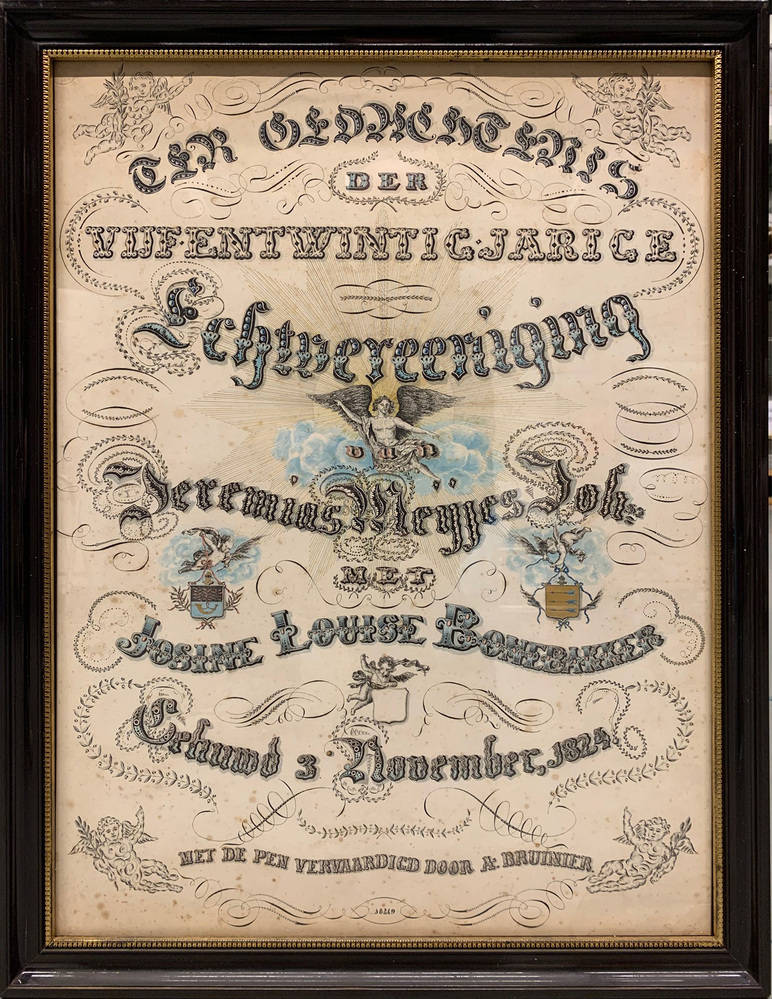 TER GEDACHTENIS
DER
VIJFENTWINTIG-JARIGE
Echtvereeniging
van
Jeremias Meyjes Joh:
MET
JOSINE LOUISE BONEBAKKER
Gehuwd 3 November, 1824.
MET DE PEN VERVAARDIGD DOOR A. BRUINIER
1849